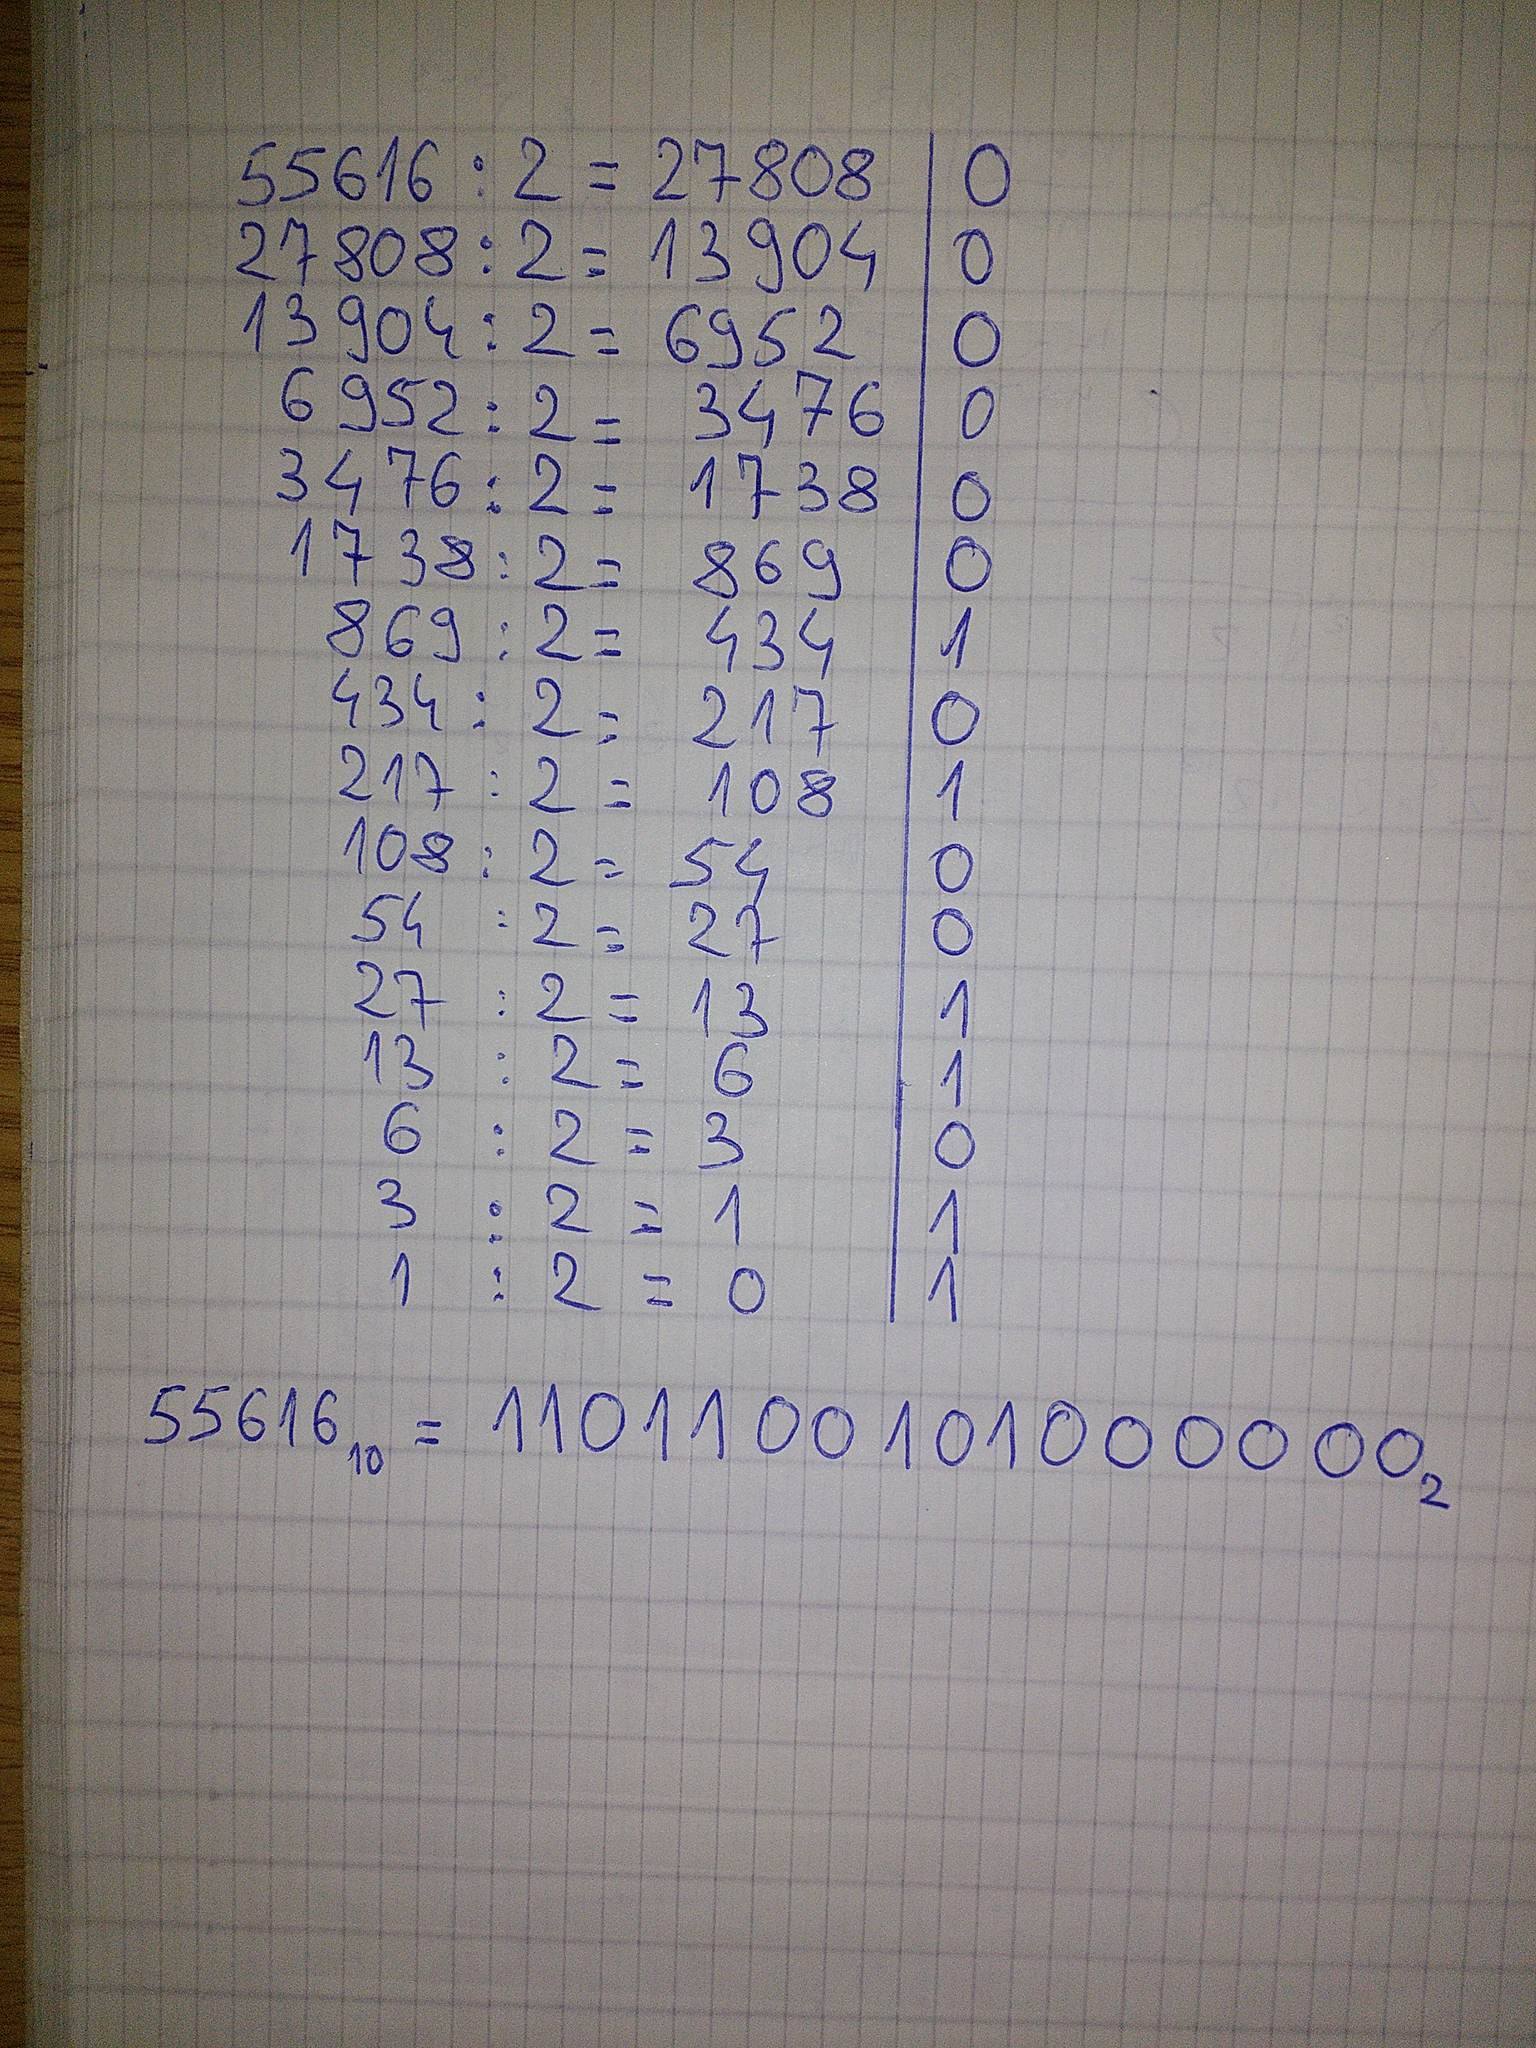 55616 : 2 = 27808 | 0
27808 : 2 = 13904 | 0
13904 : 2 = 6952 | 0
6952 : 2 = 3476 | 0
3476 : 2 = 1738 | 0
1738 : 2 = 869 | 0
869 : 2 = 434 | 1
434 : 2 = 217 | 0
217 : 2 = 108 | 1
108 : 2 = 54 | 0
54 : 2 = 27 | 0
27 : 2 = 13 | 1
13 : 2 = 6 | 1
6 : 2 = 3 | 0
3 : 2 = 1 | 1
1 : 2 = 0 | 1
55616₁₀ = 1101100101000000₂